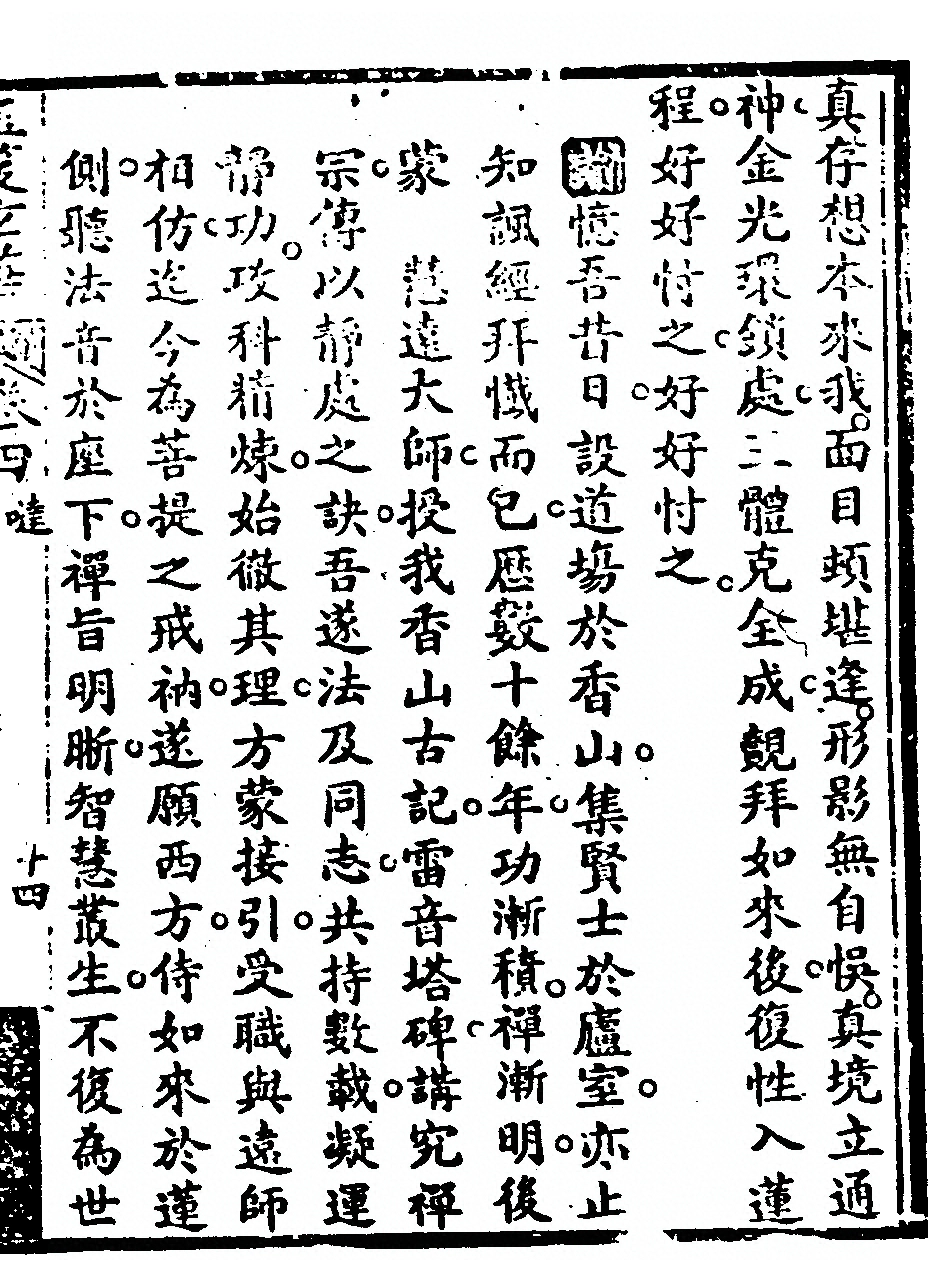 真存想本來我面目頓堪逢形影無自悞真境立通
神金光環鎖處三體克全成覲拜如來後復性入蓮
程好好忖之好好忖之
憶吾昔日設道場於香山集賢士於廬室亦止
知諷經拜懺而已歷數十餘年功漸積禪漸明後
蒙　慧遠大師授我香山古記雷音塔碑講究禪
宗傳以靜處之訣吾遂法及同志共持數載凝運
靜功攻科精煉始徹其理方蒙接引受職與遠師
相仿迄今為菩提之戒衲遂願西方侍如來於蓮
側聽法音於座下禪旨明晰智慧叢生不復為世
卷四 噠 十四